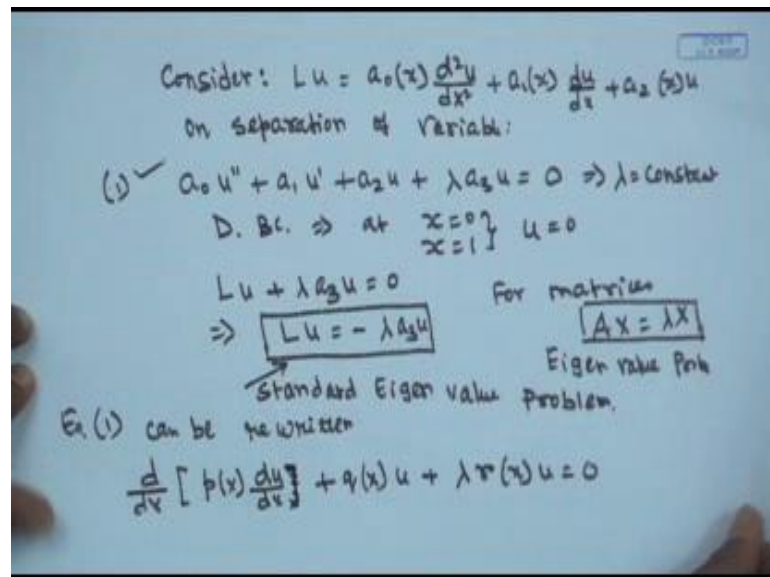 Consider: Lu = a₀(x) d²u/dx² + a₁(x) du/dx + a₂(x)u
on separation of variable:
(1) ✓ a₀u" + a₁u' + a₂u + λa₃u = 0 ⇒ λ = constant
D. BC. ⇒ at x=0 } u=0
x=1 }
Lu + λa₃u = 0 For matrices
⇒ Lu = - λa₃u AX = λX
Eigen value Prob
standard Eigen value Problem.
Eq.(1) can be rewritten
d/dx [ p(x) du/dx ] + q(x)u + λr(x)u = 0